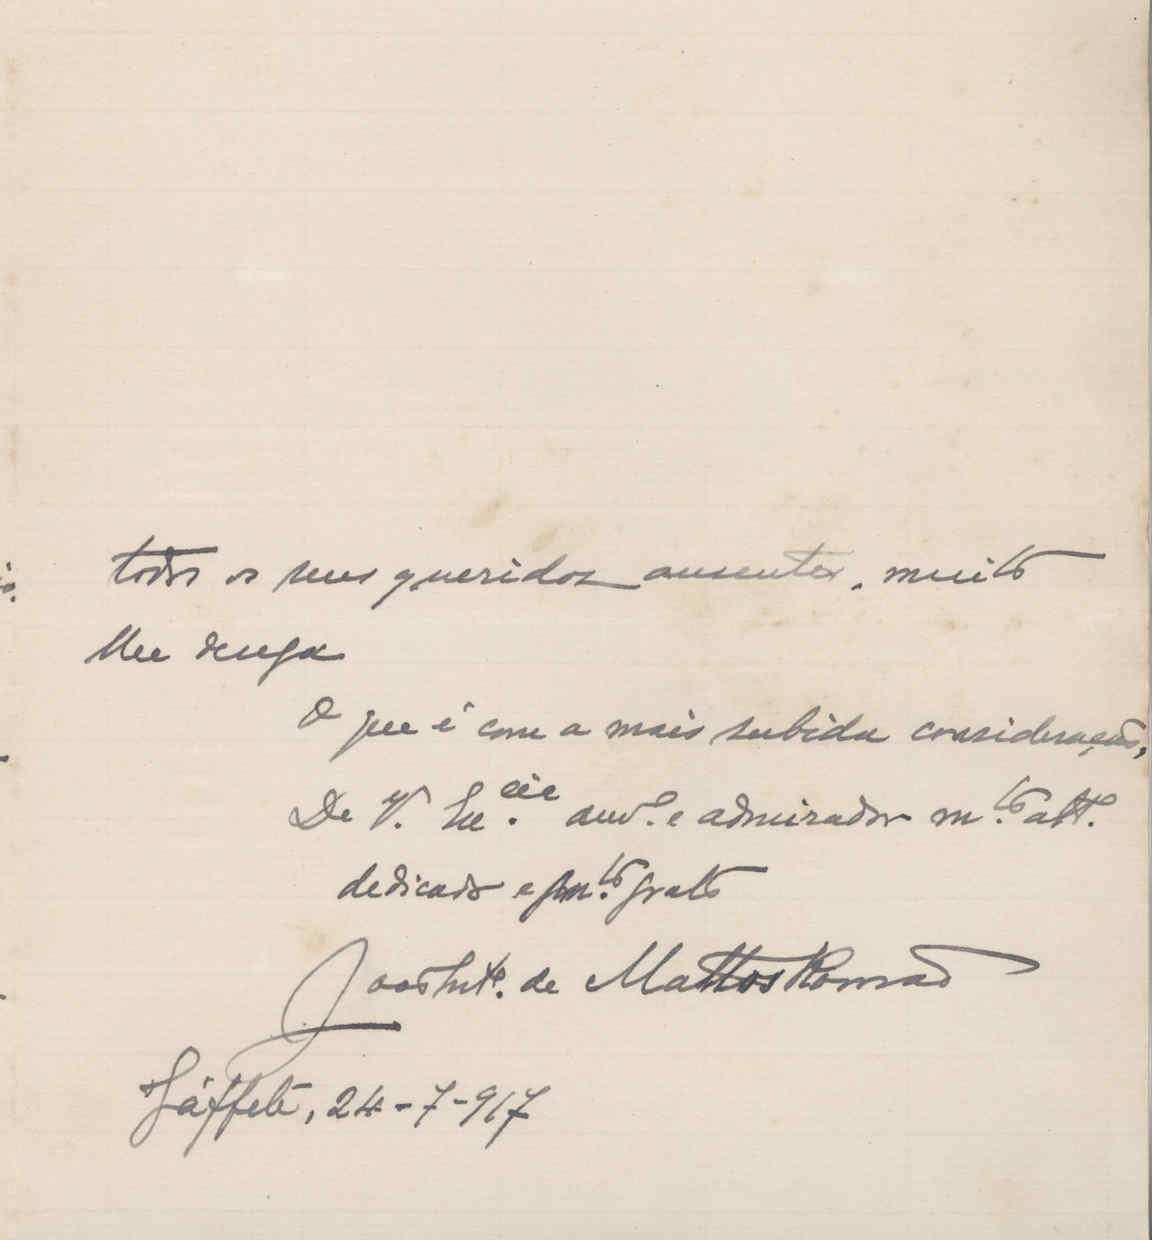 todos os seus queridos ausentes, muito
lhe deseja
O que é com a mais subida consideração,
De V. Ex.cia am.º e admirador m.to att.
dedicado e m.to grato
João Ant.º de Mattos Romão
24-7-917